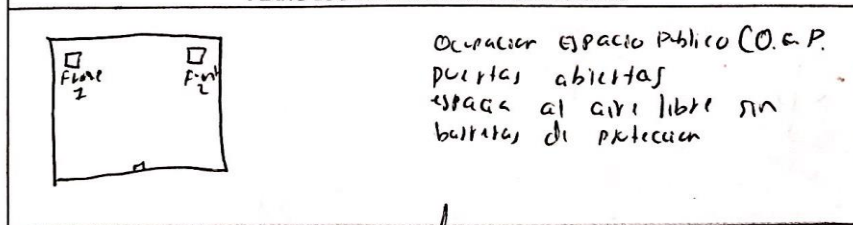 Fuente
1
Fuente
2
Ocupacion Espacio Publico CO.E.P.
puertas abiertas
espacio al aire libre sin
barreras de proteccion